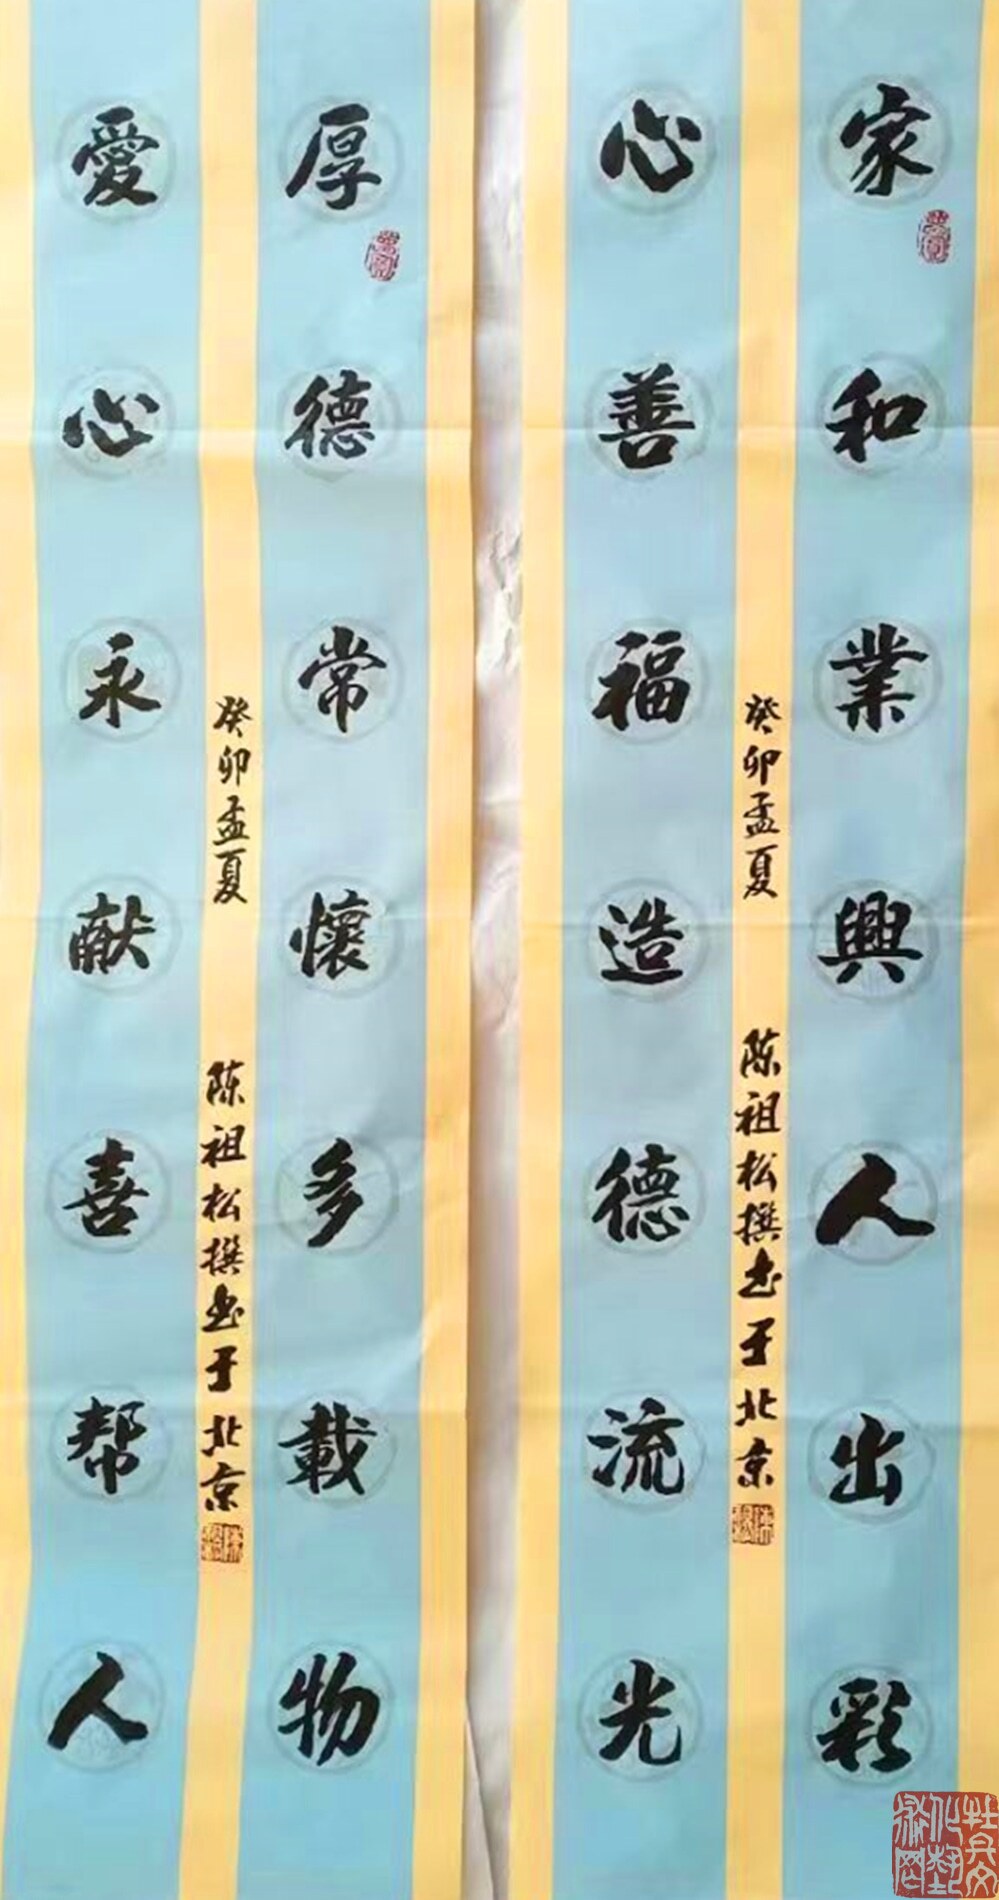 家和業興人出彩
心善福造德流光
癸卯孟夏 陈祖松撰书于北京
厚德常懷多載物
愛心永献喜帮人
癸卯孟夏 陈祖松撰书于北京